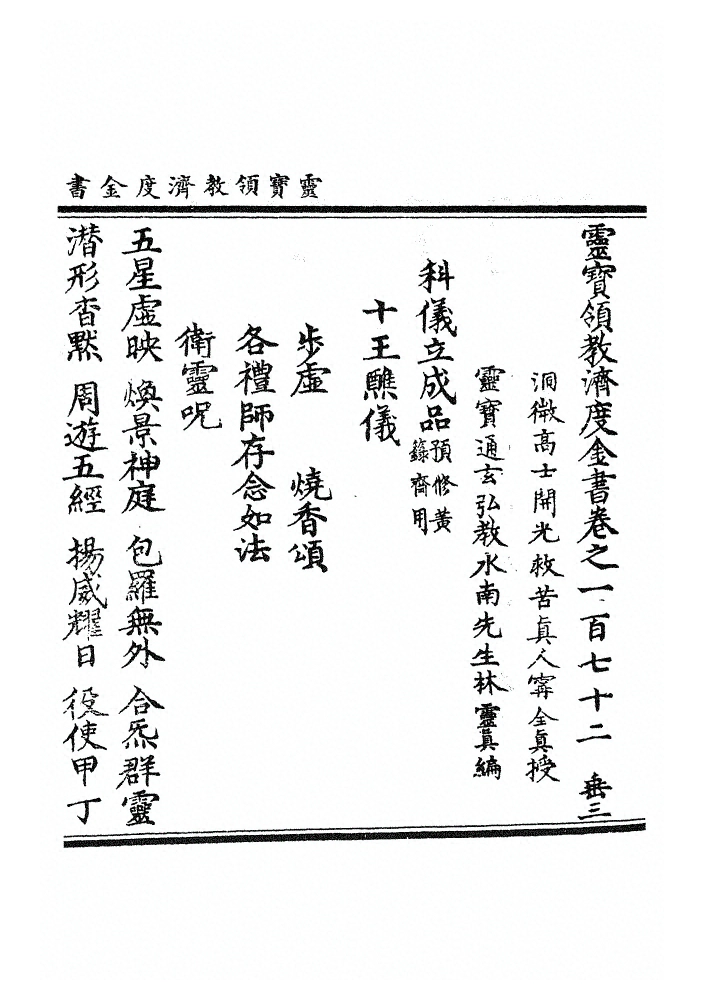 靈寶領教濟度金書
靈寶領教濟度金書卷之一百七十二 垂三
洞微高士開光救苦真人寗全真授
靈寶通玄弘教水南先生林靈真編
科儀立成品預修黃籙齋用
十王醮儀
步虛 燒香頌
各禮師存念如法
衛靈呪
五星虛映 煥景神庭 包羅無外 合炁群靈
潛形杳默 周遊五經 揚威耀日 役使甲丁